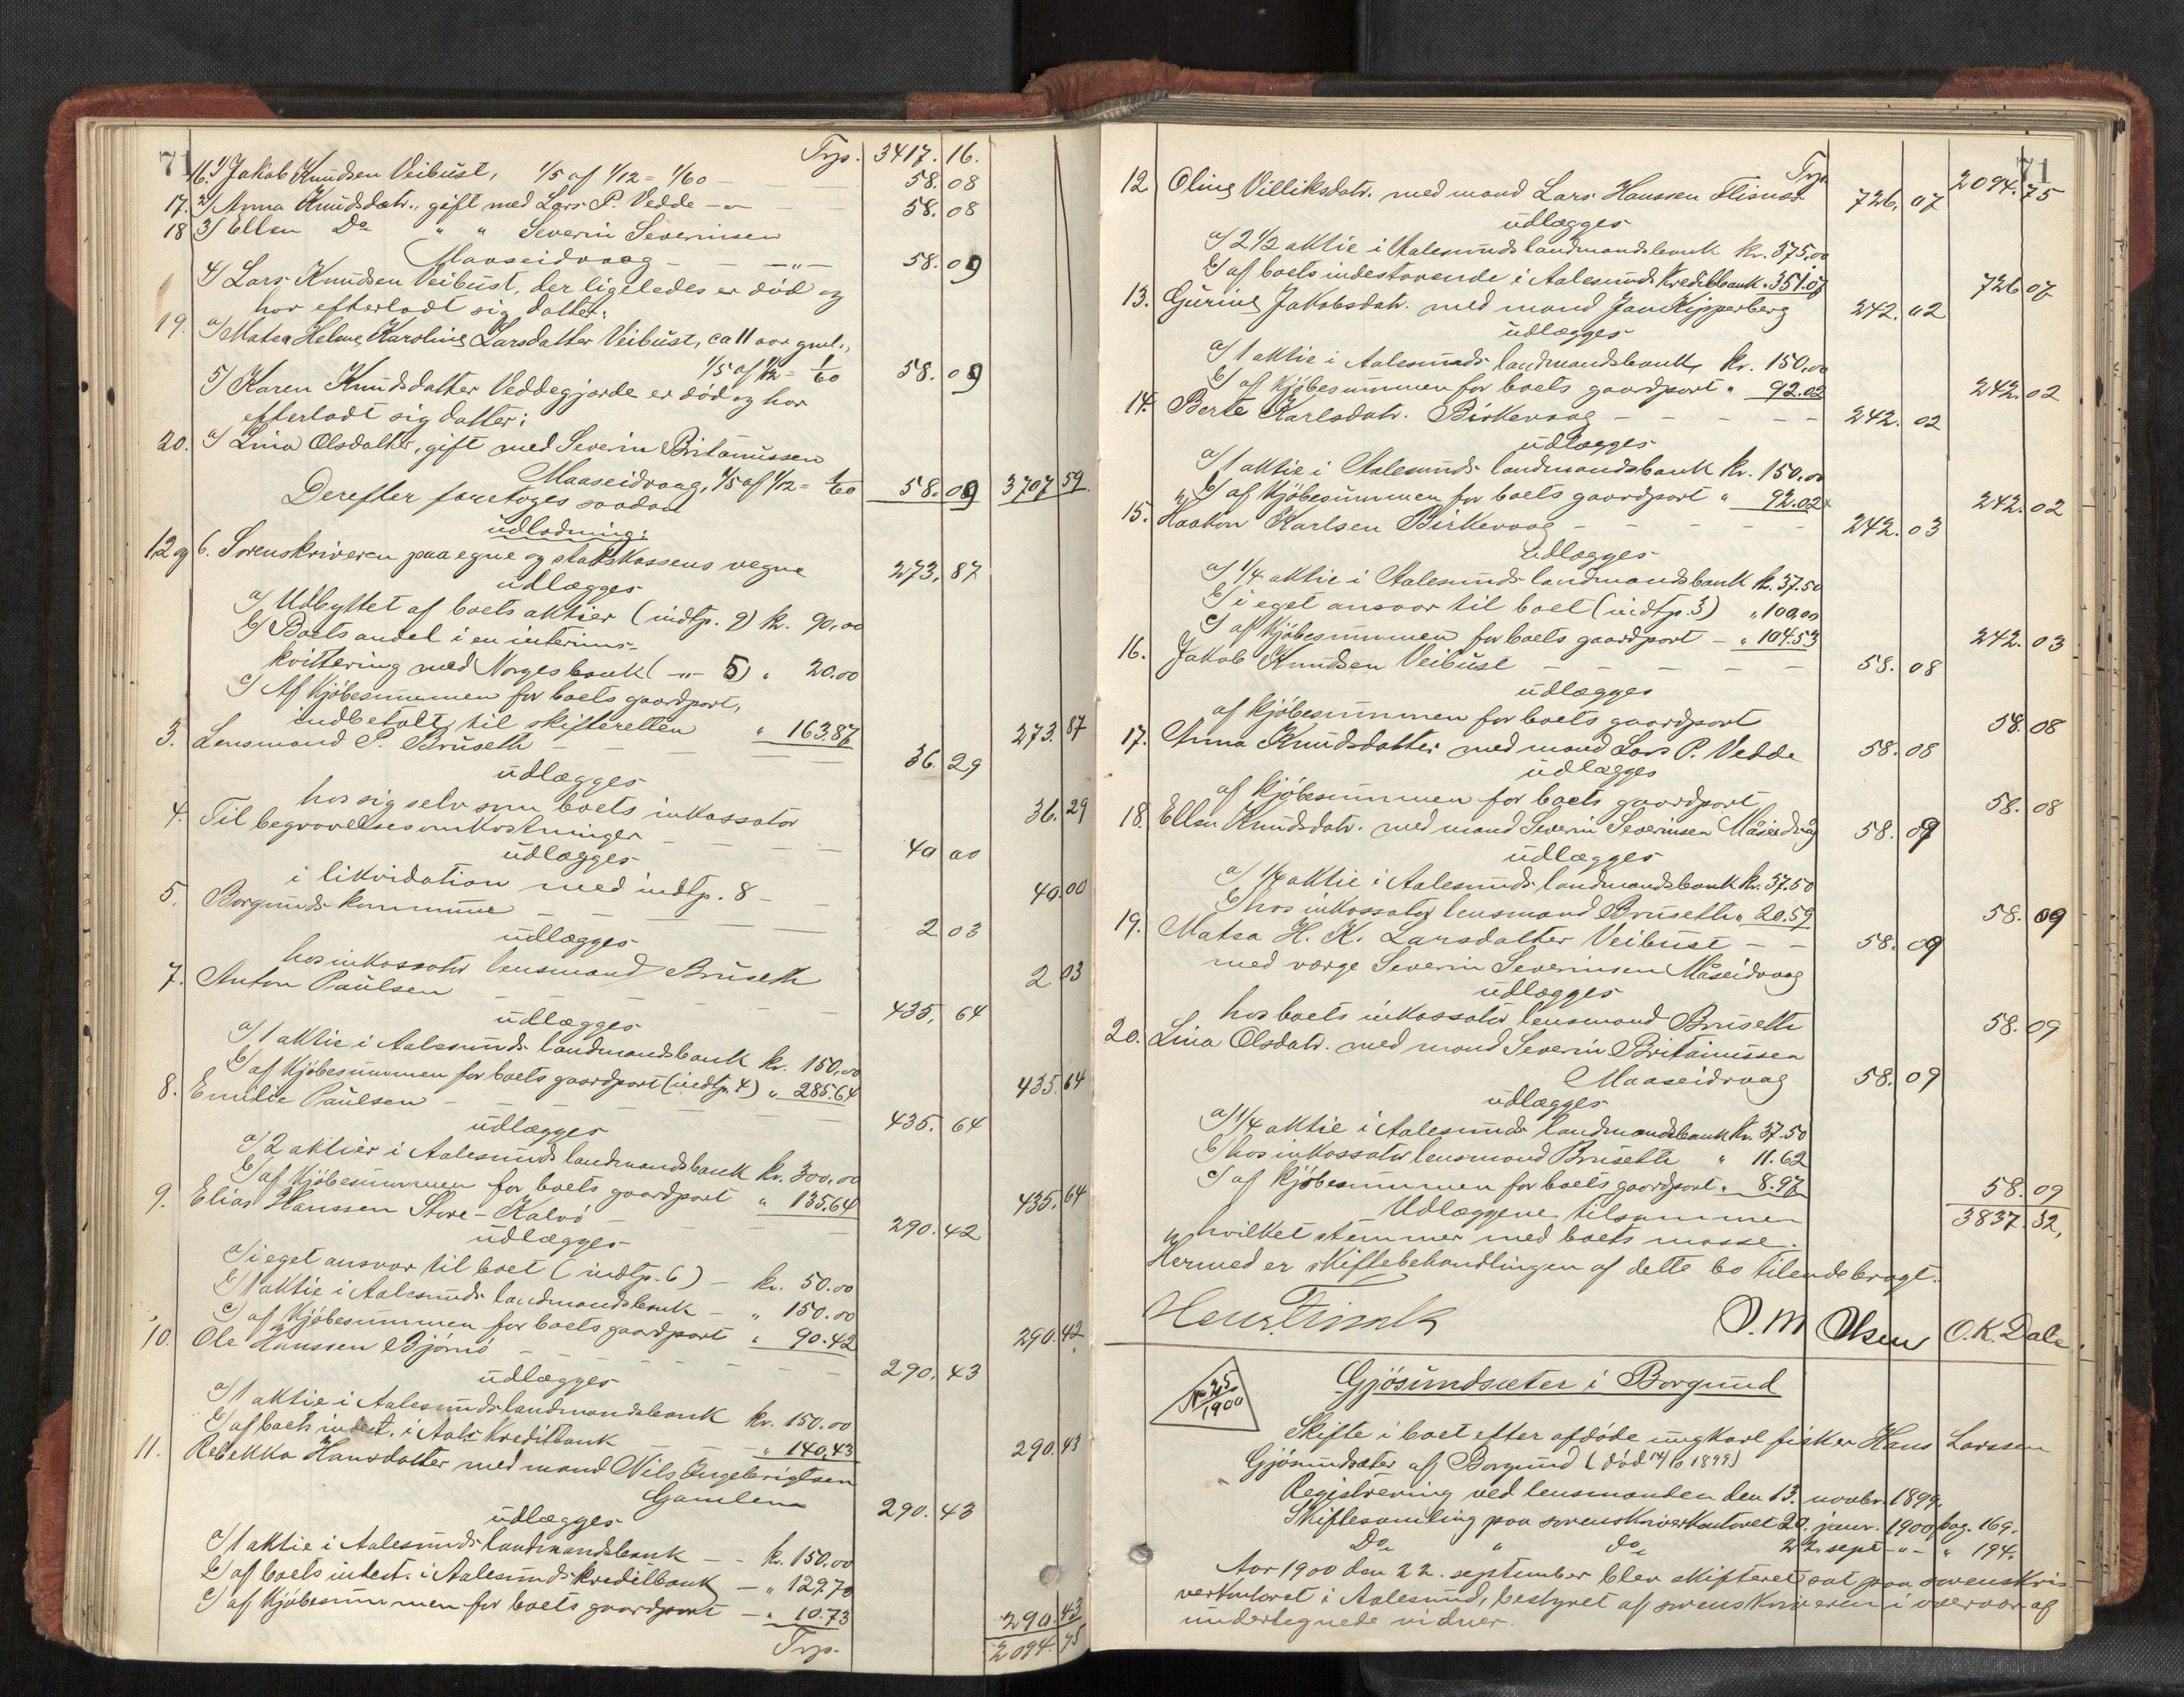 71 Trp. 3417. 16.
16. 1) Jakob Knudsen Veibust, 1/5 af 1/12 = 1/60 – 58. 08
17. 2) Anna Knudsdatr., gift med Lars P. Vedde – „ – 58. 08
18 3) Ellen Do „ „ Severin Severinsen
Maaseidvaag – „ – 58. 09
4) Lars Knudsen Veibust, der ligeledes er död og
har efterladt sig datter:
19. a) Matea Helene Karoline Larsdatter Veibust, ca 11 aar gml.,
1/5 af 1/12 = 1/60 58. 09
5) Karen Knudsdatter Veddegjerde er död og har
efterladt sig datter:
20. a) Lina Olsdatter, gift med Severin Britanussen
Maaseidvaag, 1/5 af 1/12 = 1/60 58. 09 3707 59.
Derefter foretoges saadan
udlodning:
1, 2 og 6. Sorenskriveren paa egne og statskassens vegne 273. 87
udlægges
a) Udbyttet af boets aktier (indtp. 9) kr. 90,00
b) Boets andel i en interims-
kvittering med Norges bank ( – „ – 5) „ 20.00
c) Af kjöbesummen for boets gaardpart,
indbetalt til skifteretten „ 163.87 273. 87
3. Lensmand P. Bruseth – 36. 29
udlægges
hos sig selv som boets inkassator 36. 29
4. Til begravelsesomkostninger – 40 00
udlægges
i likvidation med indtp. 8 – 40. 00
5. Borgunds kommune – 2 03
udlægges
hos inkassator lensmand Bruseth 2. 03
7. Anton Paulsen – 435. 64
udlægges
a) 1 aktie i Aalesunds landmandsbank kr. 150,00
b) af kjöbesummen for boets gaardpart (indtp. 4) „ 285.64 435. 64
8. Emilie Paulsen – 435. 64
udlægges
a) 2 aktier i Aalesunds landmandsbank kr. 300,00
b) af kjöbesummen for boets gaardpart „ 135.64 435. 64
9. Elias Hanssen Store-Kalvö – 290. 42
udlægges
a) i eget ansvar til boet (indtp. 6) – kr. 50.00
b) 1 aktie i Aalesunds landmandsbank – „ 150.00
c) af kjöbesummen for boets gaardpart „ 90.42 290. 42
10. Ole Hanssen Bjørnö – 290. 43
udlægges
a) 1 aktie i Aalesunds landmandsbank kr. 150.00
b) af boets indest. i Aals Kreditbank – „ 140.43 290. 43
11. Rebekka Hansdatter med mand Nils Engebrigtsen
Gamlem 290. 43
udlægges
a) 1 aktie i Aalesunds landmandsbank – kr. 150.00
b) af boets indest. i Aalesunds kreditbank – „ 129.70
c) af kjöbesummen for boets gaardpart – „ 10.73 290. 43
Trp. 2094. 75
71
Trp. 2094. 75
12 Oline Villiksdatr. med mand Lars Hanssen Flisnes 726. 07
udlægges
a) 2 1/2 aktie i Aalesunds landmandsbank kr. 375,00
b) af boets indestaaende i Aalesunds Kreditbank „ 351.07 726. 07
13. Gurine Jakobsdatr. med mand Jan Kipperberg 242. 02
udlægges
a) 1 aktie i Aalesunds landmandsbank kr. 150.00
b) af kjöbesummen for boets gaardpart „ 92.02 242. 02
14. Berte Karlsdatr. Birkevaag – 242. 02
udlægges
a) 1 aktie i Aalesunds landmandsbank kr. 150.00
b) af kjöbesummen for boets gaardpart „ 92.02 242. 02
15. Haakon Karlsen Birkevaag – 242. 03
udlægges
a) 1/4 aktie i Aalesunds landmandsbank kr. 37.50
b) i eget ansvar til boet (indtp. 3) „ 100,00
c) af kjöbesummen for boets gaardpart – „ 104.53 242. 03
16. Jakob Knudsen Veibust – 58. 08
udlægges
af kjöbesummen for boets gaardpart 58. 08
17. Anna Knudsdatter med mand Lars P. Vedde 58. 08
udlægges
af kjöbesummen for boets gaardpart 58. 08
18. Ellen Knudsdatr. med mand Severin Severinsen Måseidvåg 58. 09
udlægges
a) 1/4 aktie i Aalesunds landmandsbank kr. 37.50
b) hos inkassator lensmand Bruseth „ 20.59 58. 09
19. Matea H. K. Larsdatter Veibust – 58. 09
med værge Severin Severinsen Måseidvaag
udlægges
hos boets inkassator lensmand Bruseth 58. 09
20. Lina Olsdatr. med mand Severin Britanussen
Maaseidvaag 58. 09
udlægges
a) 1/4 aktie i Aalesunds landmandsbank kr. 37.50
b) hos inkassator lensmand Bruseth „ 11.62
c) af kjöbesummen for boets gaardpart „ 8.97 58. 09
Udlæggene tilsammen 3837. 32,
hvilket stemmer med boets masse.
Hermed er skiftebehandlingen af dette bo tilendebragt.
Henr. Finck O. M Olsen O. K. Dale
No 25/1900
Gjösundsæter i Borgund
Skifte i boet efter afdöde ungkarl fisker Hans Larssen
Gjösundsæter af Borgund (död 14/6 1899)
Registrering ved lensmanden den 13. novbr. 1899.
Skiftesamling paa sorenskriverkontoret 20. janr. 1900 pag. 169.
Do „ do 22. sept – „ – „ 194.
Aar 1900 den 22. september blev skifteret sat paa sorenskri-
verkontoret i Aalesund, bestyret af sorenskriveren i overvær af
undertegnede vidner.